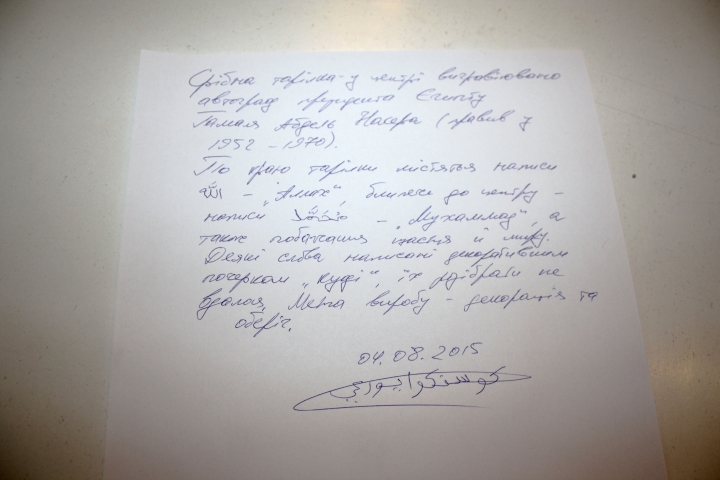 Срібна тарілка - у центрі вигравіювано
автограф президента Єгипту
Гамаля Абдель Насера (правив у
1952 – 1970).
По краю тарілки містяться написи
الله – „Аллах“, ближче до центру –
написи محمد – „Мухаммад“, а
також побажання щастя й миру.
Деякі слова написані декоративним
почерком „куфі“, їх розібрати не
вдалося. Мета виробу – декорація та
оберіг.
04.08.2015